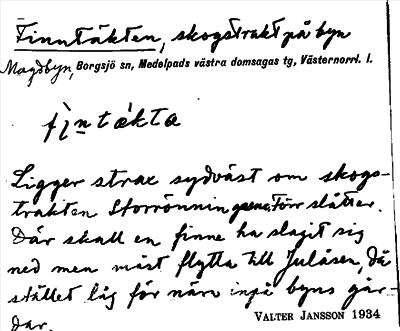 Finntäkten, skogstrakt på byn
Magdbyn, Borgsjö sn, Medelpads västra domsagas tg, Västernorrl. l.
fìntákta
Ligger strax sydväst om skogs-
trakten Storrönningarna. Förr slåtter.
Där skall en finne ha slagit sig
ned men måst flytta till Julåsen, då
stället låg för nära inpå byns går-
dar.
VALTER JANSSON 1934